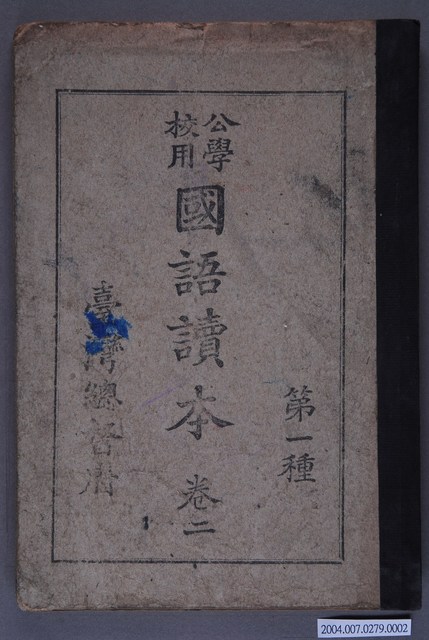 第一種
公學
校用
國語讀本 卷二
臺灣總督府
2004.007.0279.0002